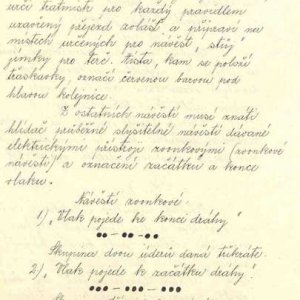 určí zatmisk pro každý pravidlem
uzavřený přejezd zvlášť a připraví na
místech určených pro návěst „stůj“
pinky pro terč. Místa, kam se položí
třaskavky, označí červenou barvou pod
hlavou kolejnice.
Z ostatních návěstí musí znáti
hlídač průběžné slyšitelné návěstí dávané
elektrickými přístroji zvonkovými (zvonkové
návěstí) a označení začátku a konce
vlaku.
Návěstí zvonkové.
1) „Vlak pojede ke konci dráhy“
●● — ●● — ●●
Skupina dvou úderů daná třikráte.
2) „Vlak pojede k začátku dráhy“.
●●● — ●●● — ●●●